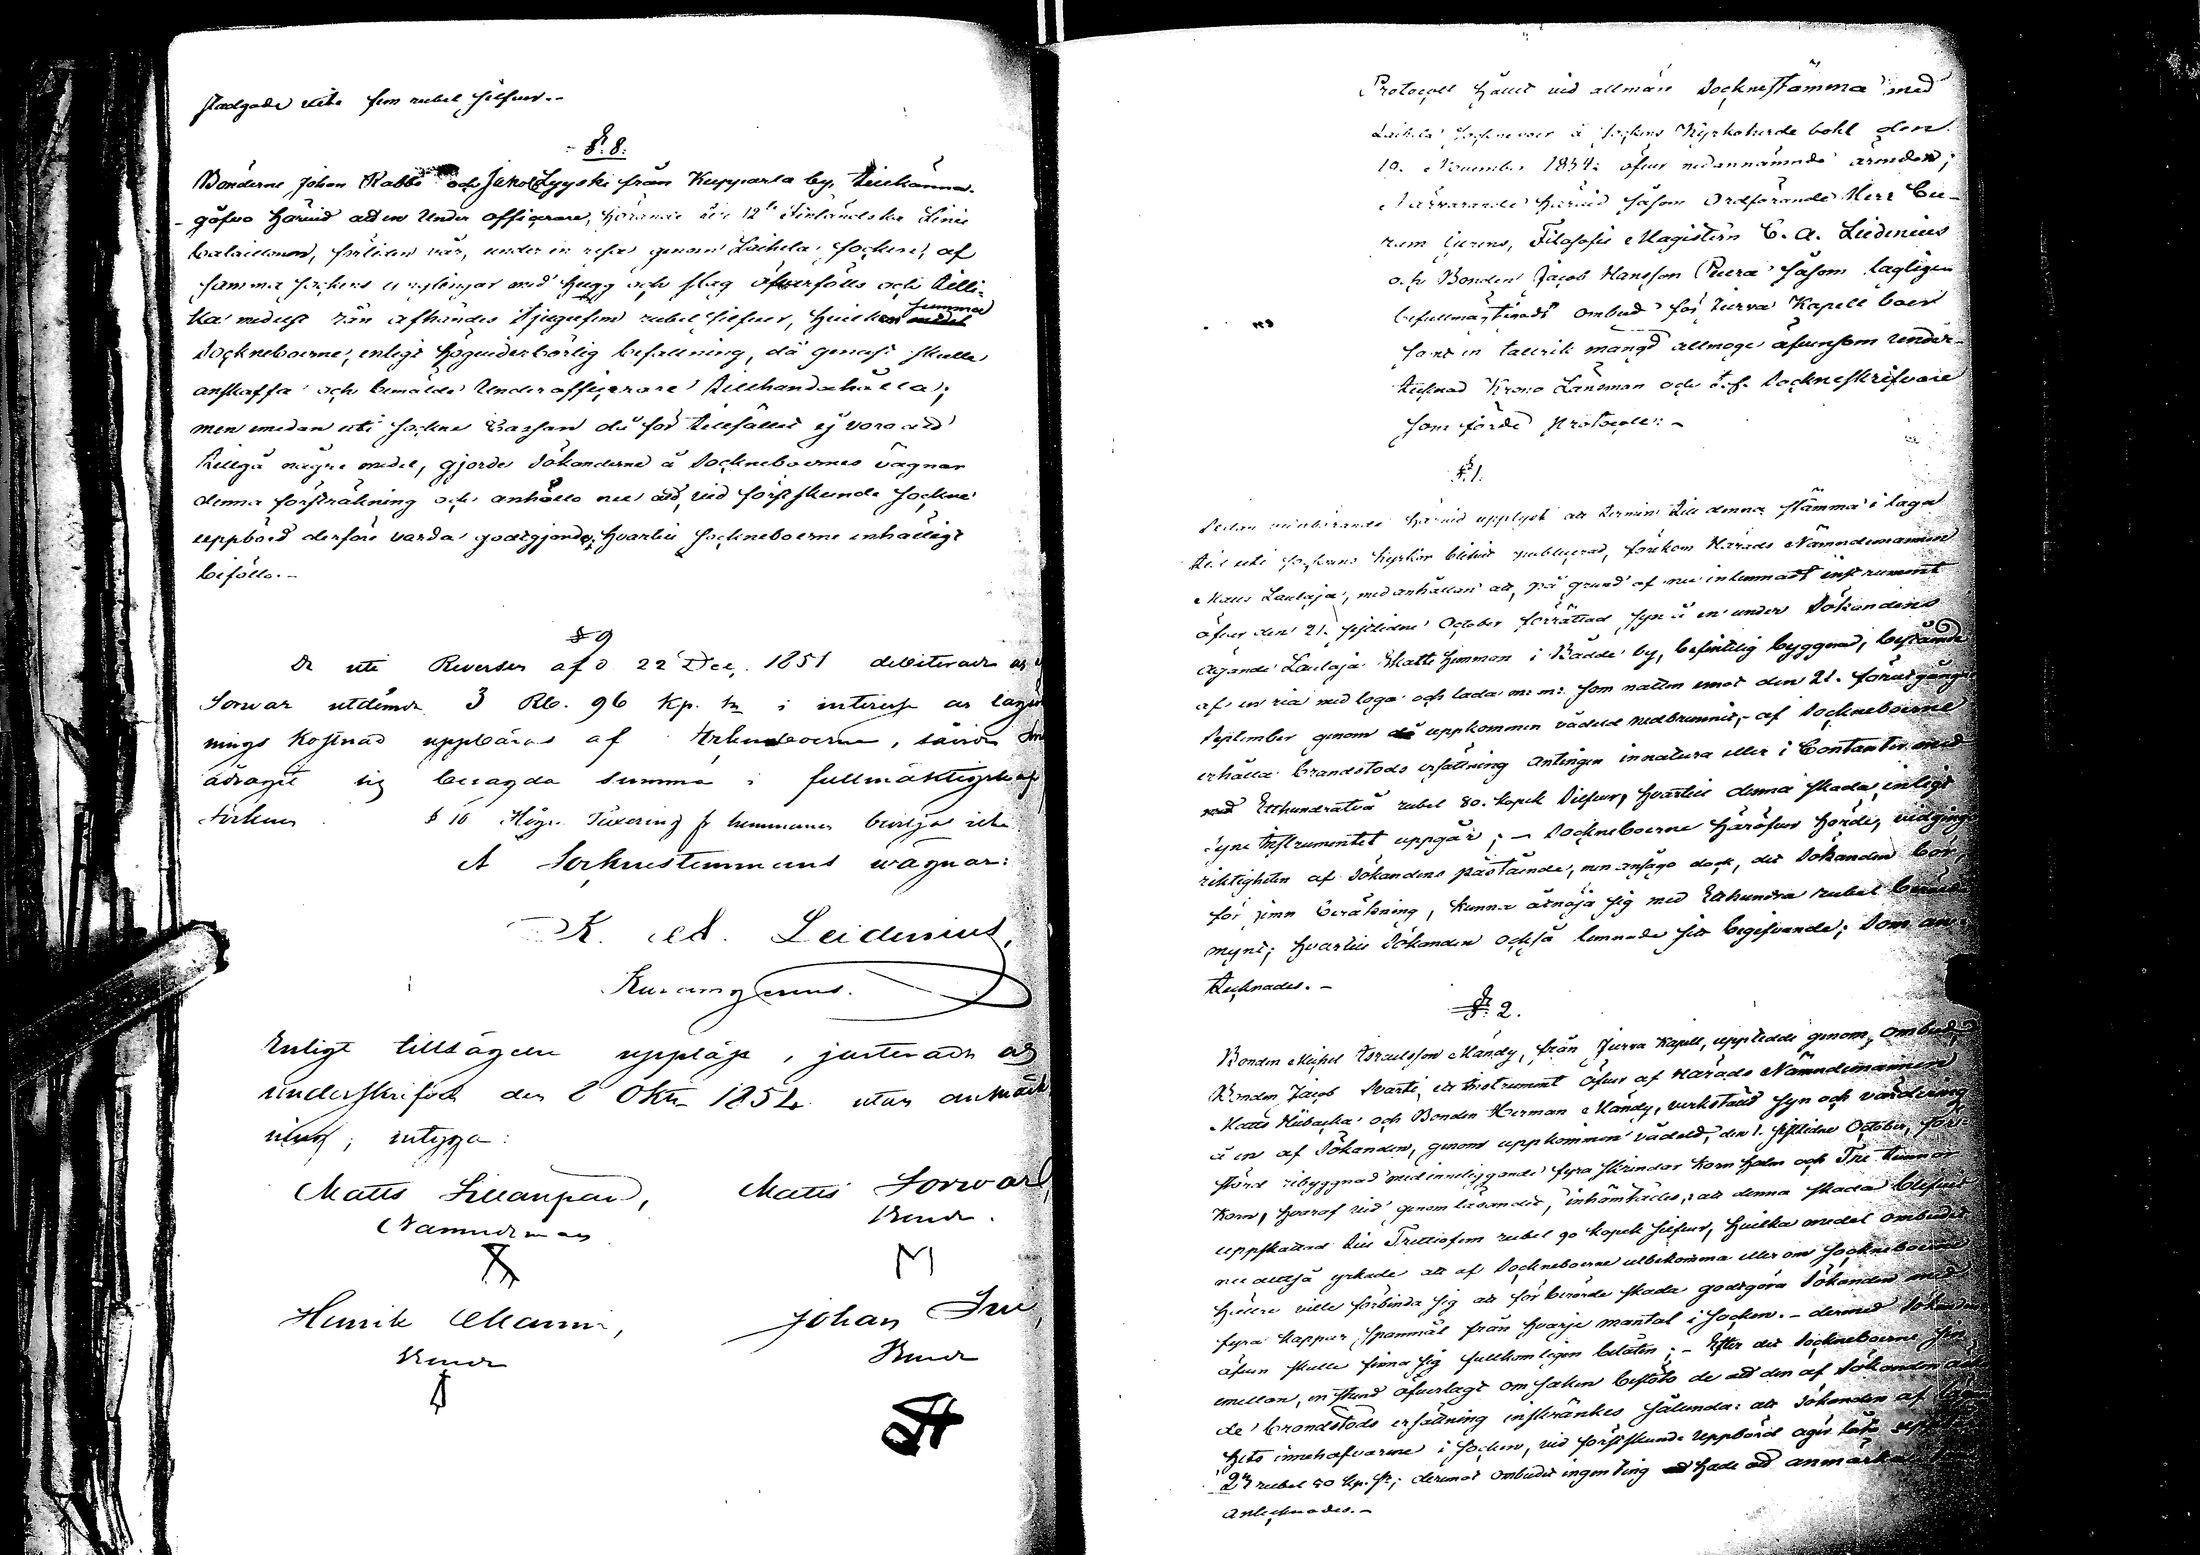 stadgade vite fem rubel silfver.-
§. 8.
Bönderne Johan Rabbe och Jakob Lyyski från Kupparla by, tillkänna-
gåfvo härvid att en Under officerare, hörande till 12te Finländska Linie
bataillonen, förliden vår, under en resa genom Laihela socken, af
samma sockens ynglingar med hugg och slag öfverfölls och tilli-
ka medelst rån afhändes tjugufem rubel silfver, hvilken summa
Sockneboerne, enligt höguederbörlig befallning, då genast skulle
anskaffa och bemälde Underofficerare tillhandahålla;
men emedan uti Sockne Cassan då för tillfället ej voro att
tillgå några medel, gjorde Sökanderne å Sockneboernes vägnar
denna försträckning och anhöllo nu att, vid först skeende Sockne
uppbörd derföre varda godtgjorde, hvartill Sockneboerne enhälligt
biföllo.-
§ 9
De uti Reversen af d 22 Dec. 1851 debiterade
Sorvar utdömde 3 Rb. 96 Kp. Sr i intresse och lagsök
nings kostnad uppbäras af Sockneboerne, såvida han
ådragit sig besagda summa i fullmäktigskap
Sockens § 10 Högre Taxering för hemmanen beviljas icke
A Sockenstemmans vägnar:
K. A. Leidenius,
Kuram gerens.
Enligt tillsägelse uppläst, justerade och
underskrifvet den 8 Oktr 1854 utan anmärk
ning; intyga:
Matts Sillanpää, Matts Sorvar,
Nämndeman Bonde.
M
Henrik Manni, Johan Irri,
Bonde Bonde
Protocoll hållet vid allmän Socknestämma med
Laihela Sockneboer å Sockens Kyrkoherde bohl den
10. November 1854: öfver nedannämnde ärenden;
Närvarande härvid såsom Ordförande Herr Cu-
ram gerens, Filosofie Magistern C. A. Leidenius
och Bonden Jacob Hansson Peura såsom lagligen
befullmäktigadt ombud för Jurva Kapell boer
samt en talrik mängd allmoge äfvensom under-
tecknad Krono Länsman och t.f. Sockneskrifvare
som förde protocoll:-
§.1.
Sedan vederbörande härvid upplyst att termin till denna stämma i laga
tid uti Sockens Kyrkor blifvit publicerad, förekom Härads Nämndemannen
Matts Laulaja, med anhållan att, på grund af nu inlemnadt instrument
öfver den 21. sistlidne October förrättad syn å en under Sökandens
ägande Laulaja Skatte hemman i Rädde by, befintelig byggnad, bestående
af en ria med loga och lada m: m: som natten emot den 21. förutgångne
September genom uppkommen vådeld nedbrunnit,- af Sockneboerne
erhålla brandstods ersättning antingen in natura eller i Contanter med
Etthundratvå rubel 80. kopek Silfver, hvartill denna skada, enligt
syne Instrumentet uppgår;- Sockneboerne häröfver hörde, vidgingo
riktigheten af Sökandens påstående, men ansågo dock, det Sökanden bör,
för jemn beräkning, kunna åtnöja sig med Etthundra rubel berörde
mynt; hvartill Sökanden också lemnade sitt begifvande; Som an-
tecknades.-
§. 2.
Bonden Michel Israelsson Mändy, från Jurva Kapell, upptedde genom ombud,
Bonden Jacob Svarti, ett Instrument öfver af Härads Nämndemannen
Matts Hiibacka och Bonden Herman Mändy, verkstäld syn och värdering
å en af Sökanden, genom uppkommen vådeld, den 1. sistlidne October, för-
störd ribyggnad med inneliggande fyra skrindor Korn halm och Tre tunnor
Korn, hvaraf vid genomläsandet, inhämtades, att denna skada blifvit
uppskattad till Trettiofem rubel 90 kopek silfver, hvilka medel ombudet
nu altså yrkade att af Sockneboerne utbekomma eller om Sockneboerne
hellre ville förbinda sig att för berörde skada godtgöra Sökanden med
fyra kappar Spannmål från hvarje mantal i Socken.- dermed Sökanden
äfven skulle finna sig fullkomligen belåten;- Efter det Sockneboerne sin
emellan, en stund öfverlagt om saken beslöto de att den af Sökanden äska
de brandstods ersättning inskränkes sålunda: att Sökanden af lägen
hets innehafvarne i Socken, vid först skeende Uppbörd äger låta uppbära
25 rubel 80 kp. Sr; deremot ombudet ingenting hade att anmärka
antecknades.-